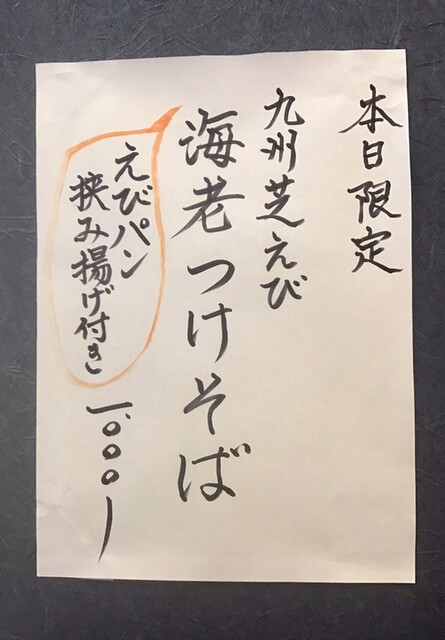 本日限定
九州芝えび
海老つけそば
えびパン
挟み揚げ付き
一、〇〇〇ー